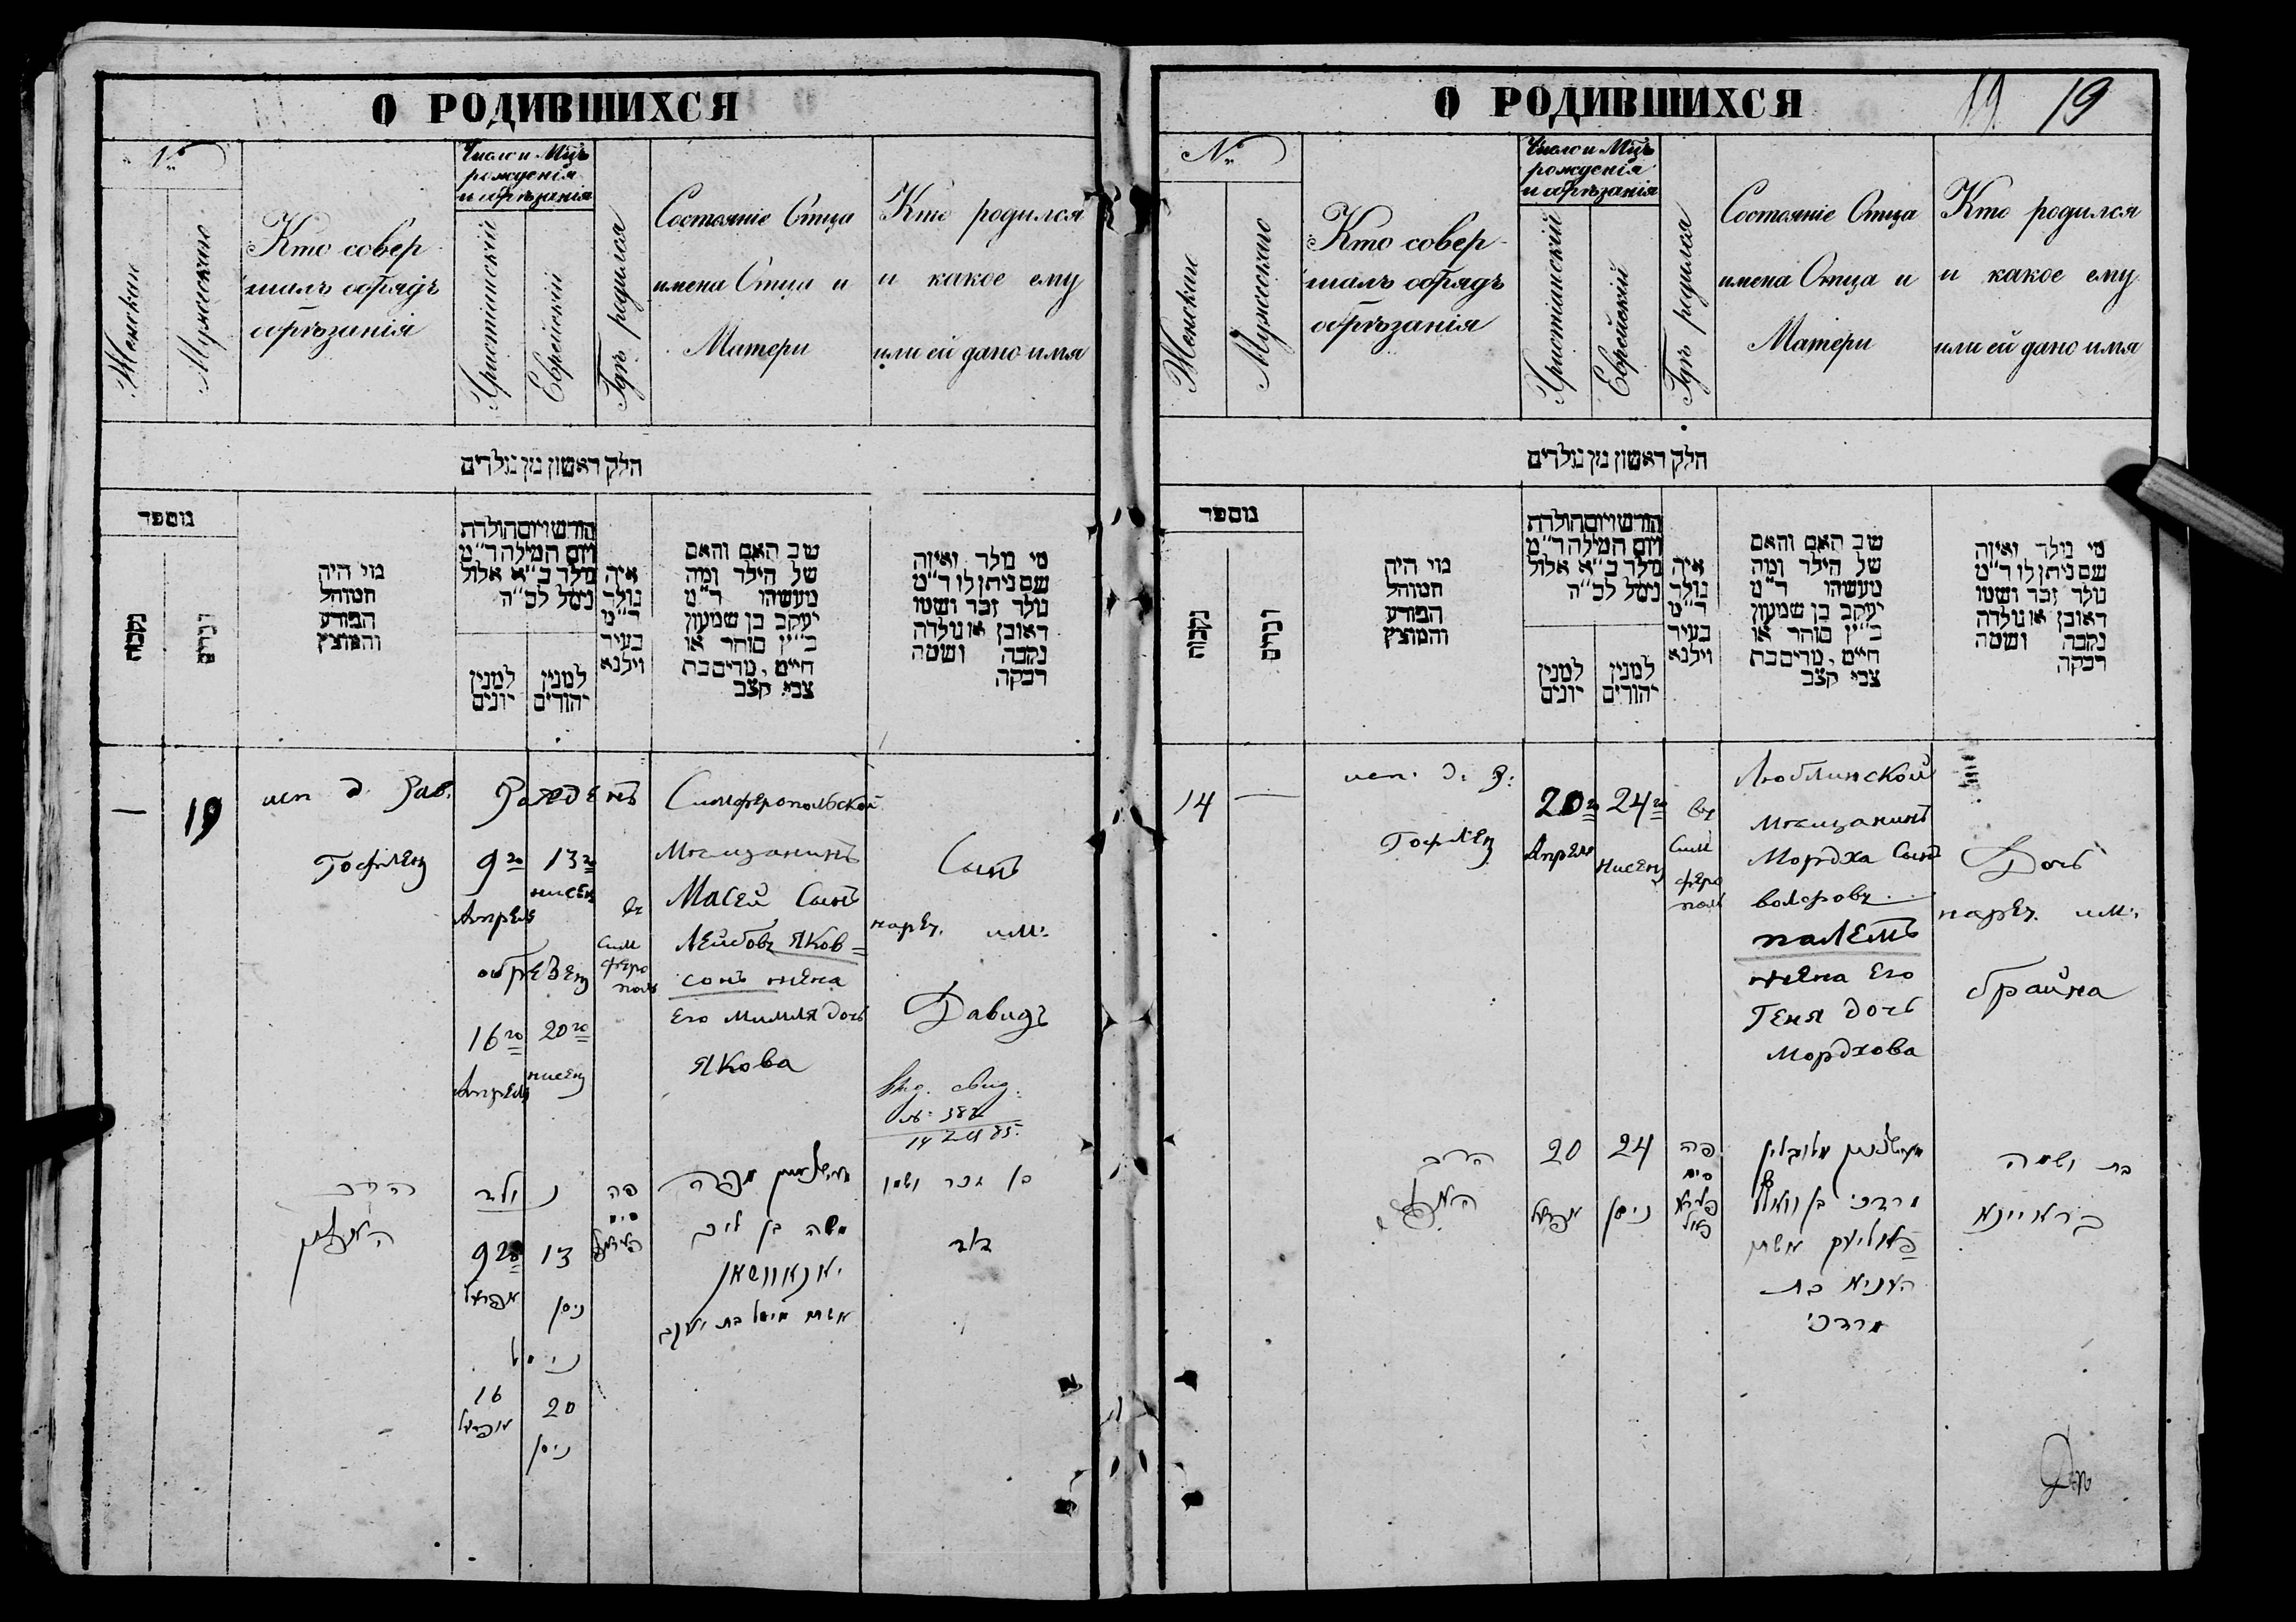 О РОДИВШИХСЯ
№
Женскаго
Мужескаго
Кто совер-
шалъ обрядъ
обрѣзанія
Число и Мцъ
рожденія
и обрѣзанія
Христіанскій
Еврейскій
Гдѣ родился
Состояніе Отца
имена Отца и
Матери
Кто родился
и какое ему
или ей дано имя
חלק ראשון מן נולדים
מספר
נקבות
זכרים
מי היה
המוהל
הפורע
והמוצץ
חודש ויום הולדת
ויום המילה ד״מ
נולד ב״א אלול
נימל לכ״ה
למנין
יונים
למנין
יהודים
איה
נולד
ד״מ
בעיר
וילנא
שב האם והאם
של הילד ומה
מעשהו ד״מ
יעקב בן שמעון
כ״ץ סוחר או
חיים, מרים בת
צבי קצב
מי מלד ואיזה
שם ניתן לו ד״מ
נולד זכר ושמו
ראובן או נולדה
נקבה ושמה
רבקה
—
19
исп д. Рав.
Гофленъ
Рожденъ
9го 13го
Апреля нисенъ
обрезенъ
16го 20го
Апреля нисенъ
въ
Сим
феро
поль
Симферопольской
Мѣщанинъ
Мосей Сынъ
Лейбовъ Яков=
сонъ жена
Его Мимля дочь
Якова
Сынъ
нареч. им.
Давидъ
Выд. свид.
ניסן
נולד
פה
סים
משה בן ליב
יאנאווסאן
בן זכר ושמו
דוד
9го 13
ניסן
נימל
16 20
ניסן
О РОДИВШИХСЯ
19 19
№
Женскаго
Мужескаго
Кто совер-
шалъ обрядъ
обрѣзанія
Число и Мцъ
рожденія
и обрѣзанія
Христіанскій
Еврейскій
Гдѣ родился
Состояніе Отца
имена Отца и
Матери
Кто родился
и какое ему
или ей дано имя
חלק ראשון מן נולדים
מספר
נקבות
זכרים
מי היה
המוהל
הפורע
והמוצץ
חודש ויום הולדת
ויום המילה ד״מ
נולד ב״א אלול
נימל לכ״ה
למנין
יונים
למנין
יהודים
איה
נולד
ד״מ
בעיר
וילנא
שב האם והאם
של הילד ומה
מעשהו ד״מ
יעקב בן שמעון
כ״ץ סוחר או
חיים, מרים בת
צבי קצב
מי נולד ואיזה
שם ניתן לו ד״מ
נולד זכר ושמו
ראובן או נולדה
נקבה ושמה
רבקה
14
—
исп. д. Р.
Гофленъ
20го 24го
Апреля нисенъ
въ
Сим
феро
поль
Люблинской
Мѣщанинъ
Мордха Сынъ
волфовъ
палемъ
жена Его
Геня дочь
Мордхова
Дочь
нареч. им.
брайна
הרב
20 24
אפריל ניסן
פה
סים
פירא
פאל
מלובלין
מרדכי בן וואלף
העניא בת
מרדכי
בת ושמה
בראיינא